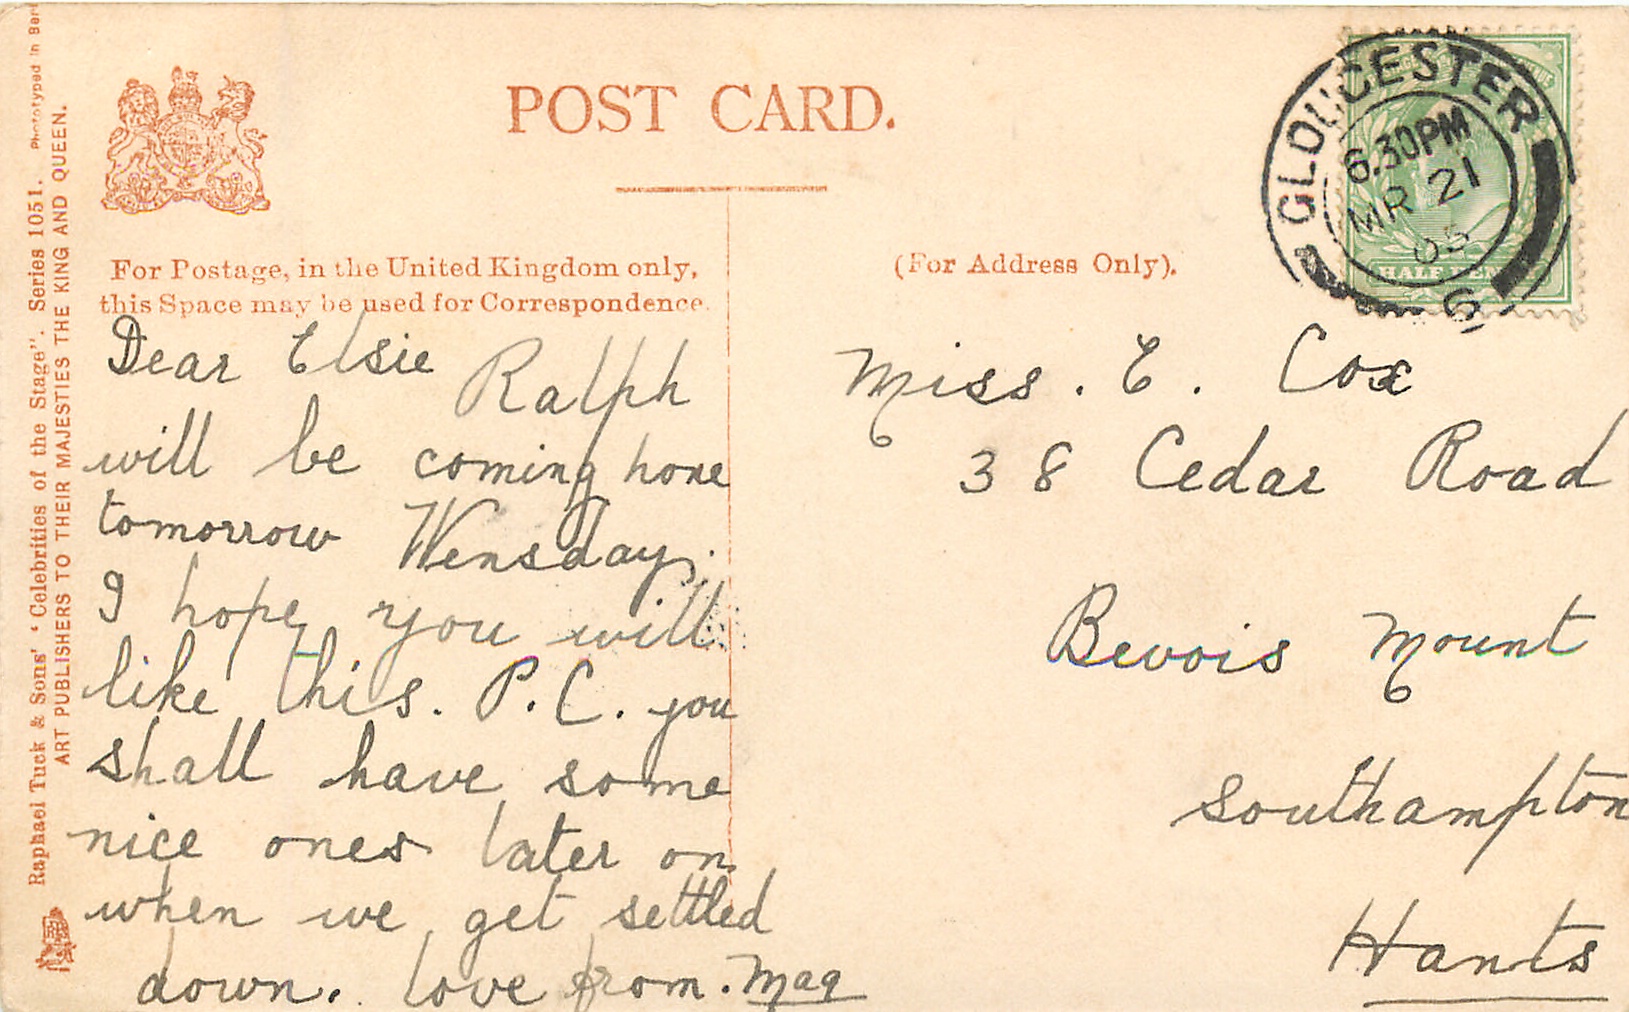 POST CARD.
For Postage, in the United Kingdom only,
this Space may be used for Correspondence.
(For Address Only).
Dear Elsie Ralph
will be coming home
tomorrow Wensday.
I hope you will
like this. P.C. you
shall have some
nice ones later on
when we get settled
down. love from. Mag
Miss. E. Cox
38 Cedar Road
Bevois Mount
Southampton
Hants
GLOUCESTER
6.30PM
MR 21
05
6
HALF PENNY
Raphael Tuck & Sons' "Celebrities of the Stage". Series 1051. Phototyped in
ART PUBLISHERS TO THEIR MAJESTIES THE KING AND QUEEN.